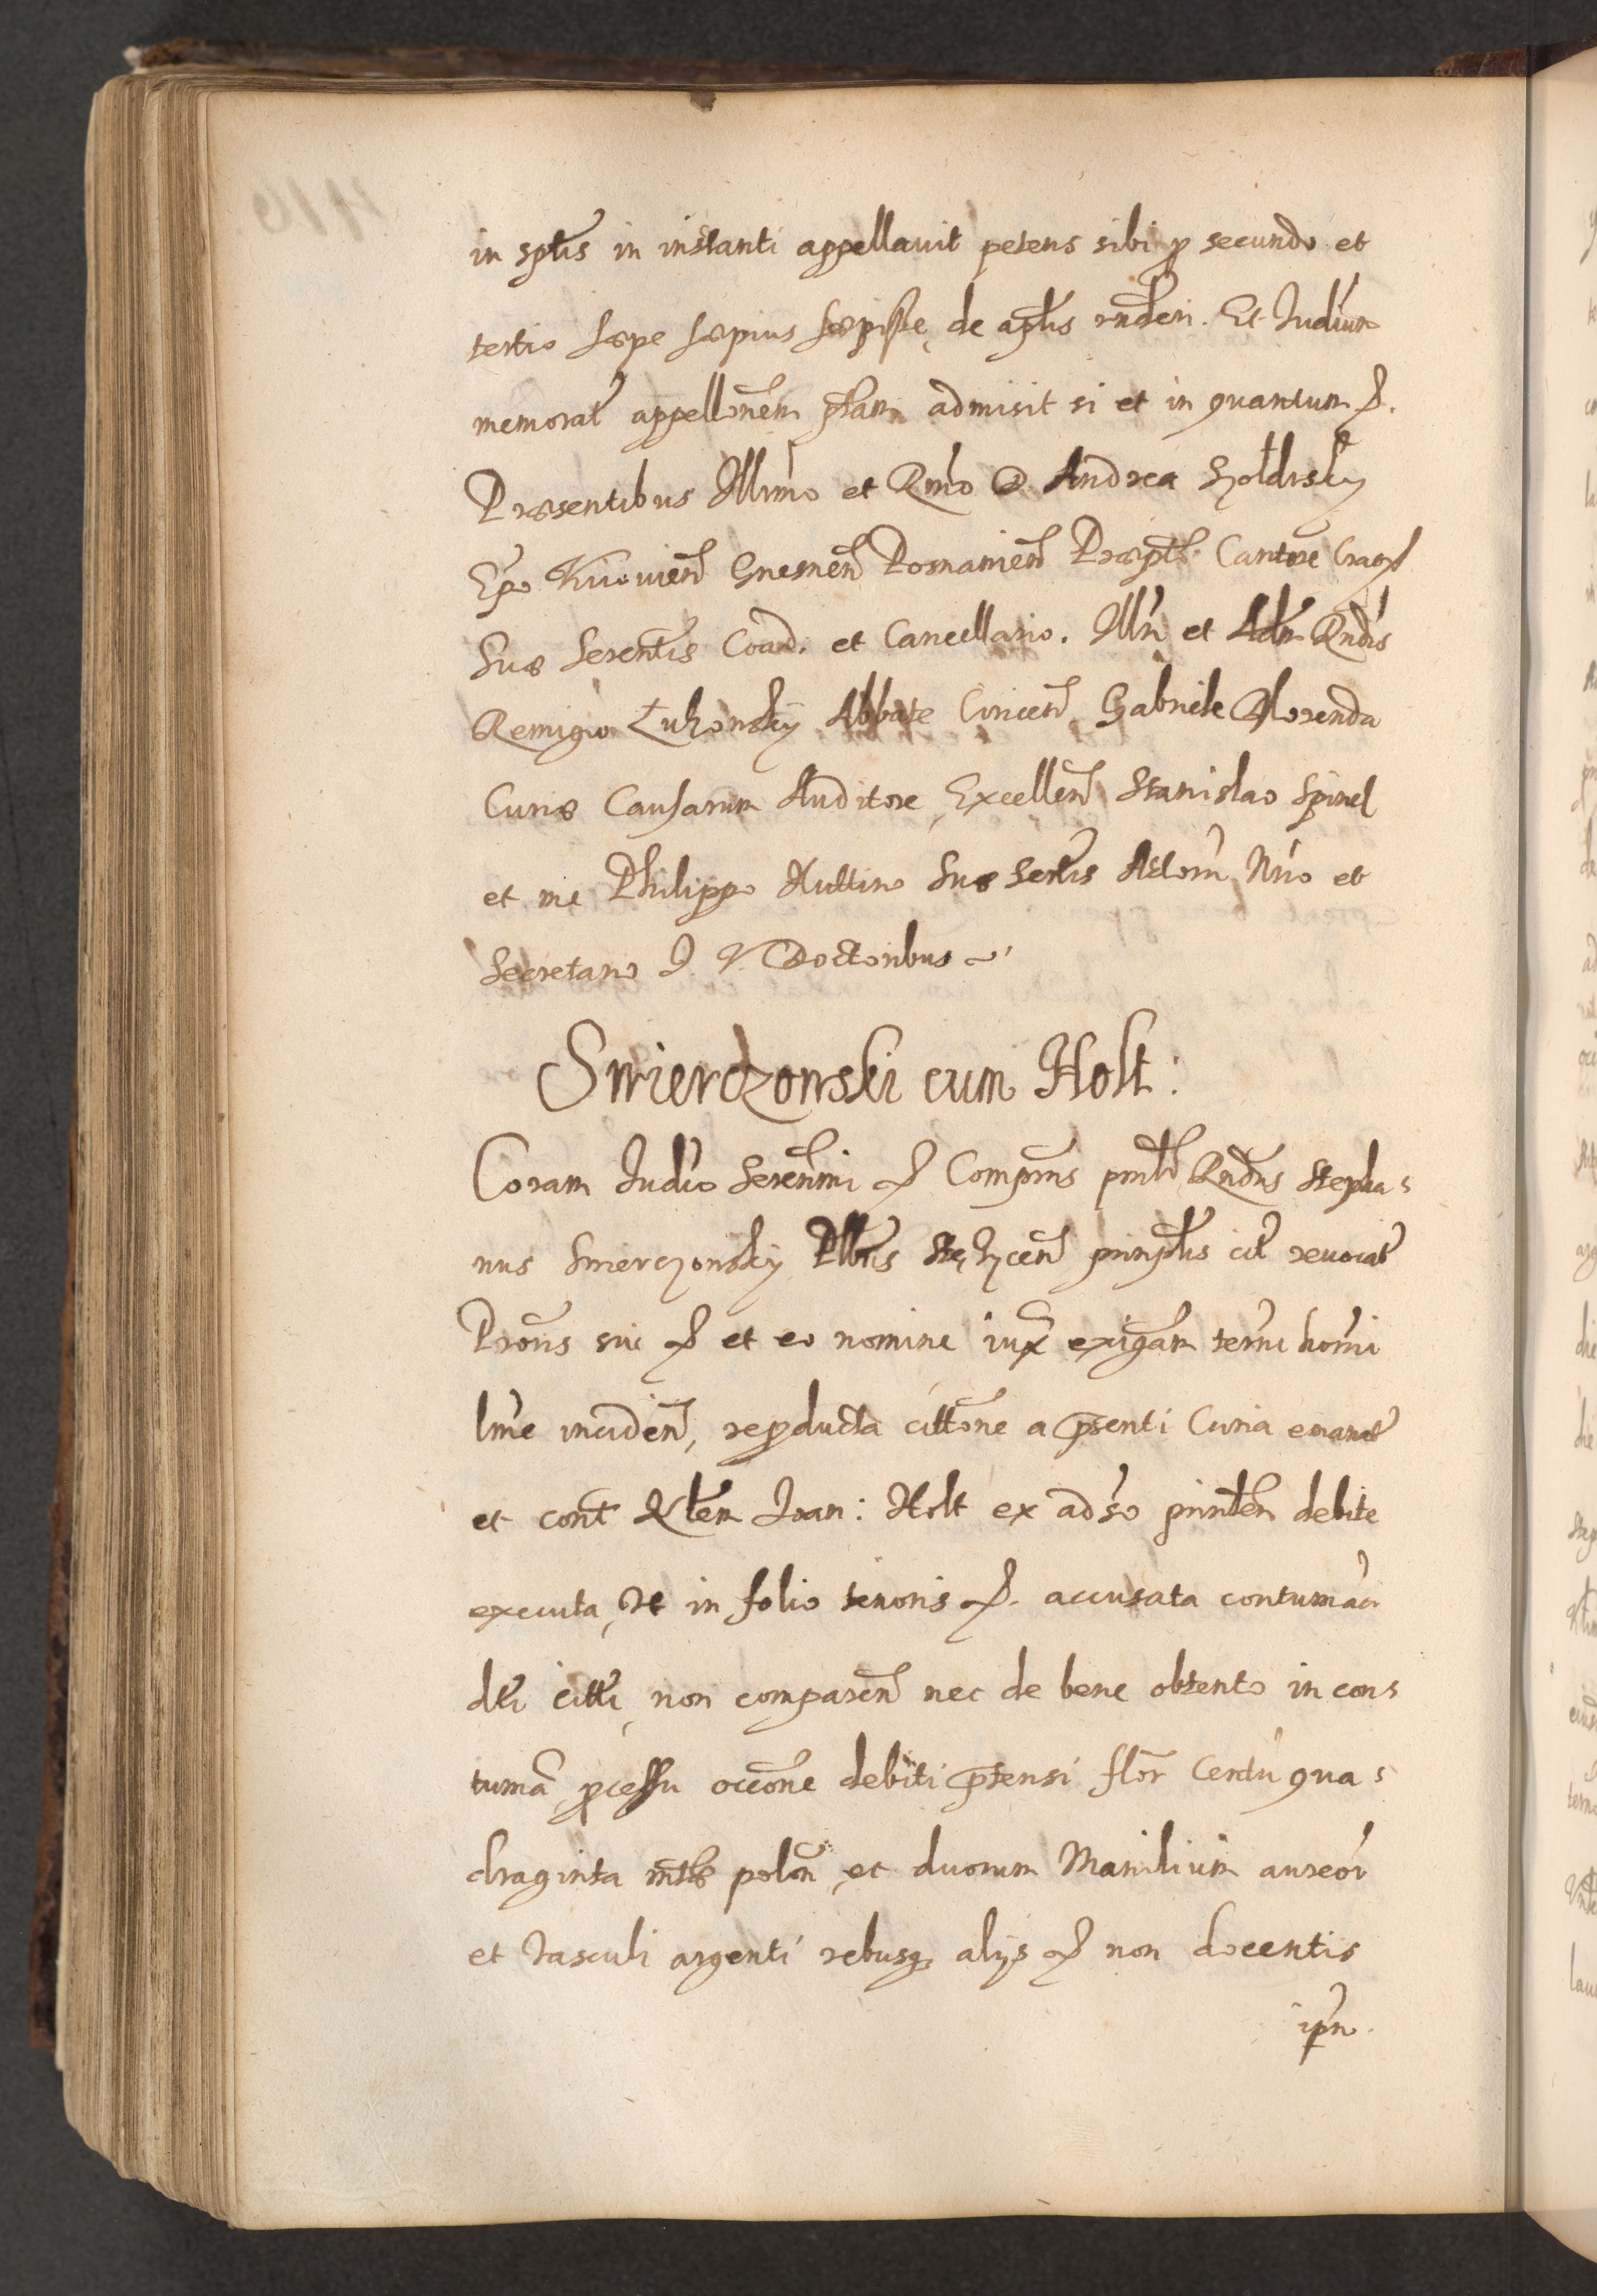 in sptis in instanti appellavit petens sibi p secundo et
tertio sæpe sæpius sæpisse de aplis rnderi. Et Iudium
memorat appellonem ptam admisit si et in quantum &.
Præsentibus Illimo et Rmo D Andrea Szoldrsky
Epo Kiiovien Gnesnen Posnanien Præpto Cantore Crac
Suæ Serentis Coad. et Cancellario. Illri et Adm Rndis
Remigio Łukonsky Abbate Coricen Gabriele Florenda
Curiæ Causarum Auditore, Excellen Stanislao Spinel
et me Philippo Huttino Suæ Sertis Actorm Nrio et
Secretario I. V. Doctoribus
Swierczowski cum Holt:
Coram Iudio Serenmi & Comprns pnlr Rndus Stepha-
nus Swierczonsky Plbnus Stężycen prinplis cit revocat
Proris sui & et eo nomine iux exigam termi horni
lme inciden, reproducta cittone a psenti Curia emanat
et cont Nlem Joan: Holt ex adso prinlem debite
executa, Et in folio tenoris &. accusata contumaci
dti citti, non comparen nec de bene obtento in con-
tuma pcessu occone debiti ptensi flor Centu qua-
draginta mtæ polon, et duorum Manilium aureor
et Vasculi argenti rebusq alijs & non docentis
ipm